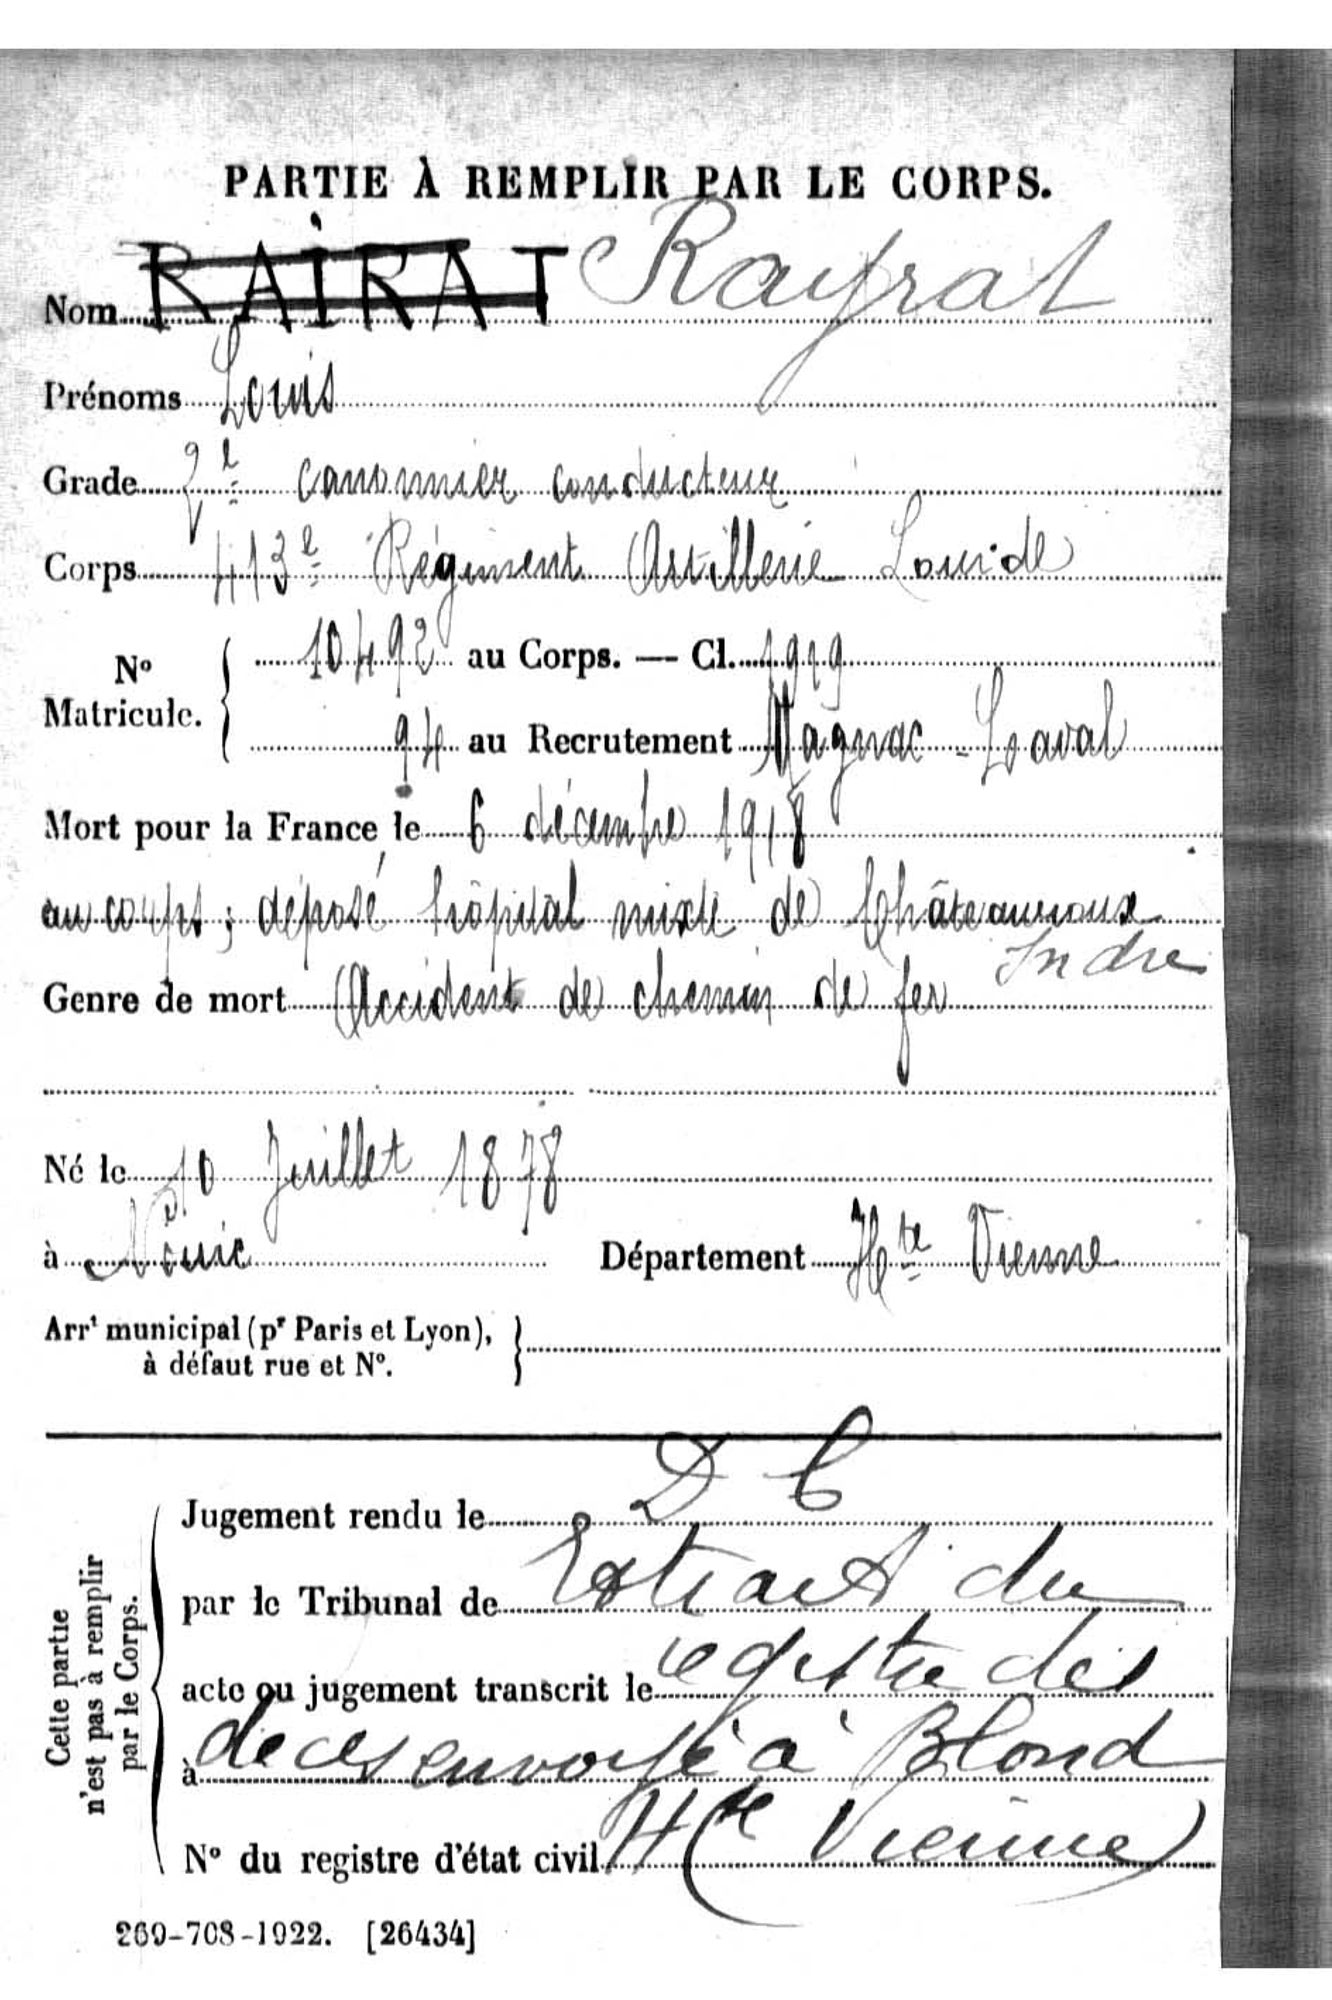 PARTIE À REMPLIR PAR LE CORPS.
Nom RAIRAT Rayrat
Prénoms Louis
Grade 2e canonnier conducteur
Corps 413e Régiment Artillerie Lourde
No Matricule. { 10492 au Corps. — Cl. 1919
94 au Recrutement Magnac-Laval
Mort pour la France le 6 décembre 1918
au corps ; déposé hôpital mixte de Châteauroux
Indre
Genre de mort Accident de chemin de fer
Né le 10 Juillet 1878
à Nouic Département Hte Vienne
Arrt municipal (pr Paris et Lyon), }
à défaut rue et No.
Cette partie
n'est pas à remplir
par le Corps.
D C
Jugement rendu le
par le Tribunal de Extrait du
acte ou jugement transcrit le registre des
à deces envoyé à Blond
No du registre d'état civil H(te Vienne)
269-708-1922. [26434]